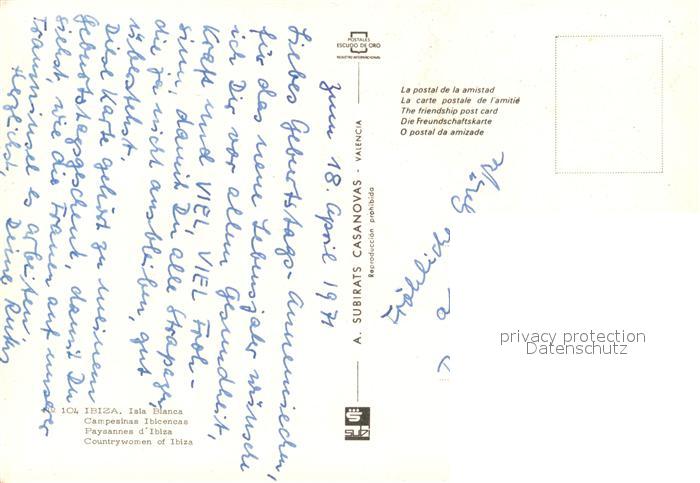 POSTALES
ESCUDO DE ORO
REGISTRO INTERNACIONAL
La postal de la amistad
La carte postale de l'amitié
The friendship post card
Die Freundschaftskarte
O postal da amizade
A. SUBIRATS CASANOVAS - VALENCIA
Reproducción prohibida
zum 18. April 1971
Liebes Geburtstags-Annemiechen,
für das neue Lebensjahr wünsche
ich Dir vor allem Gesundheit,
Kraft und VIEL, VIEL Froh-
sinn, damit Du alle Strapazen,
die ja nicht ausbleiben, gut
überstehst.
Diese Karte gehört zu meinem
Geburtstagsgeschenk, damit Du
siehst, wie die Frauen auf unserer
Trauminsel es arbeiten.
Herzlichst, Deine Ruth
Fröhliche
privacy protection
Datenschutz
Nº 104 IBIZA. Isla Blanca
Campesinas Ibicencas
Paysannes d'Ibiza
Countrywomen of Ibiza
subi